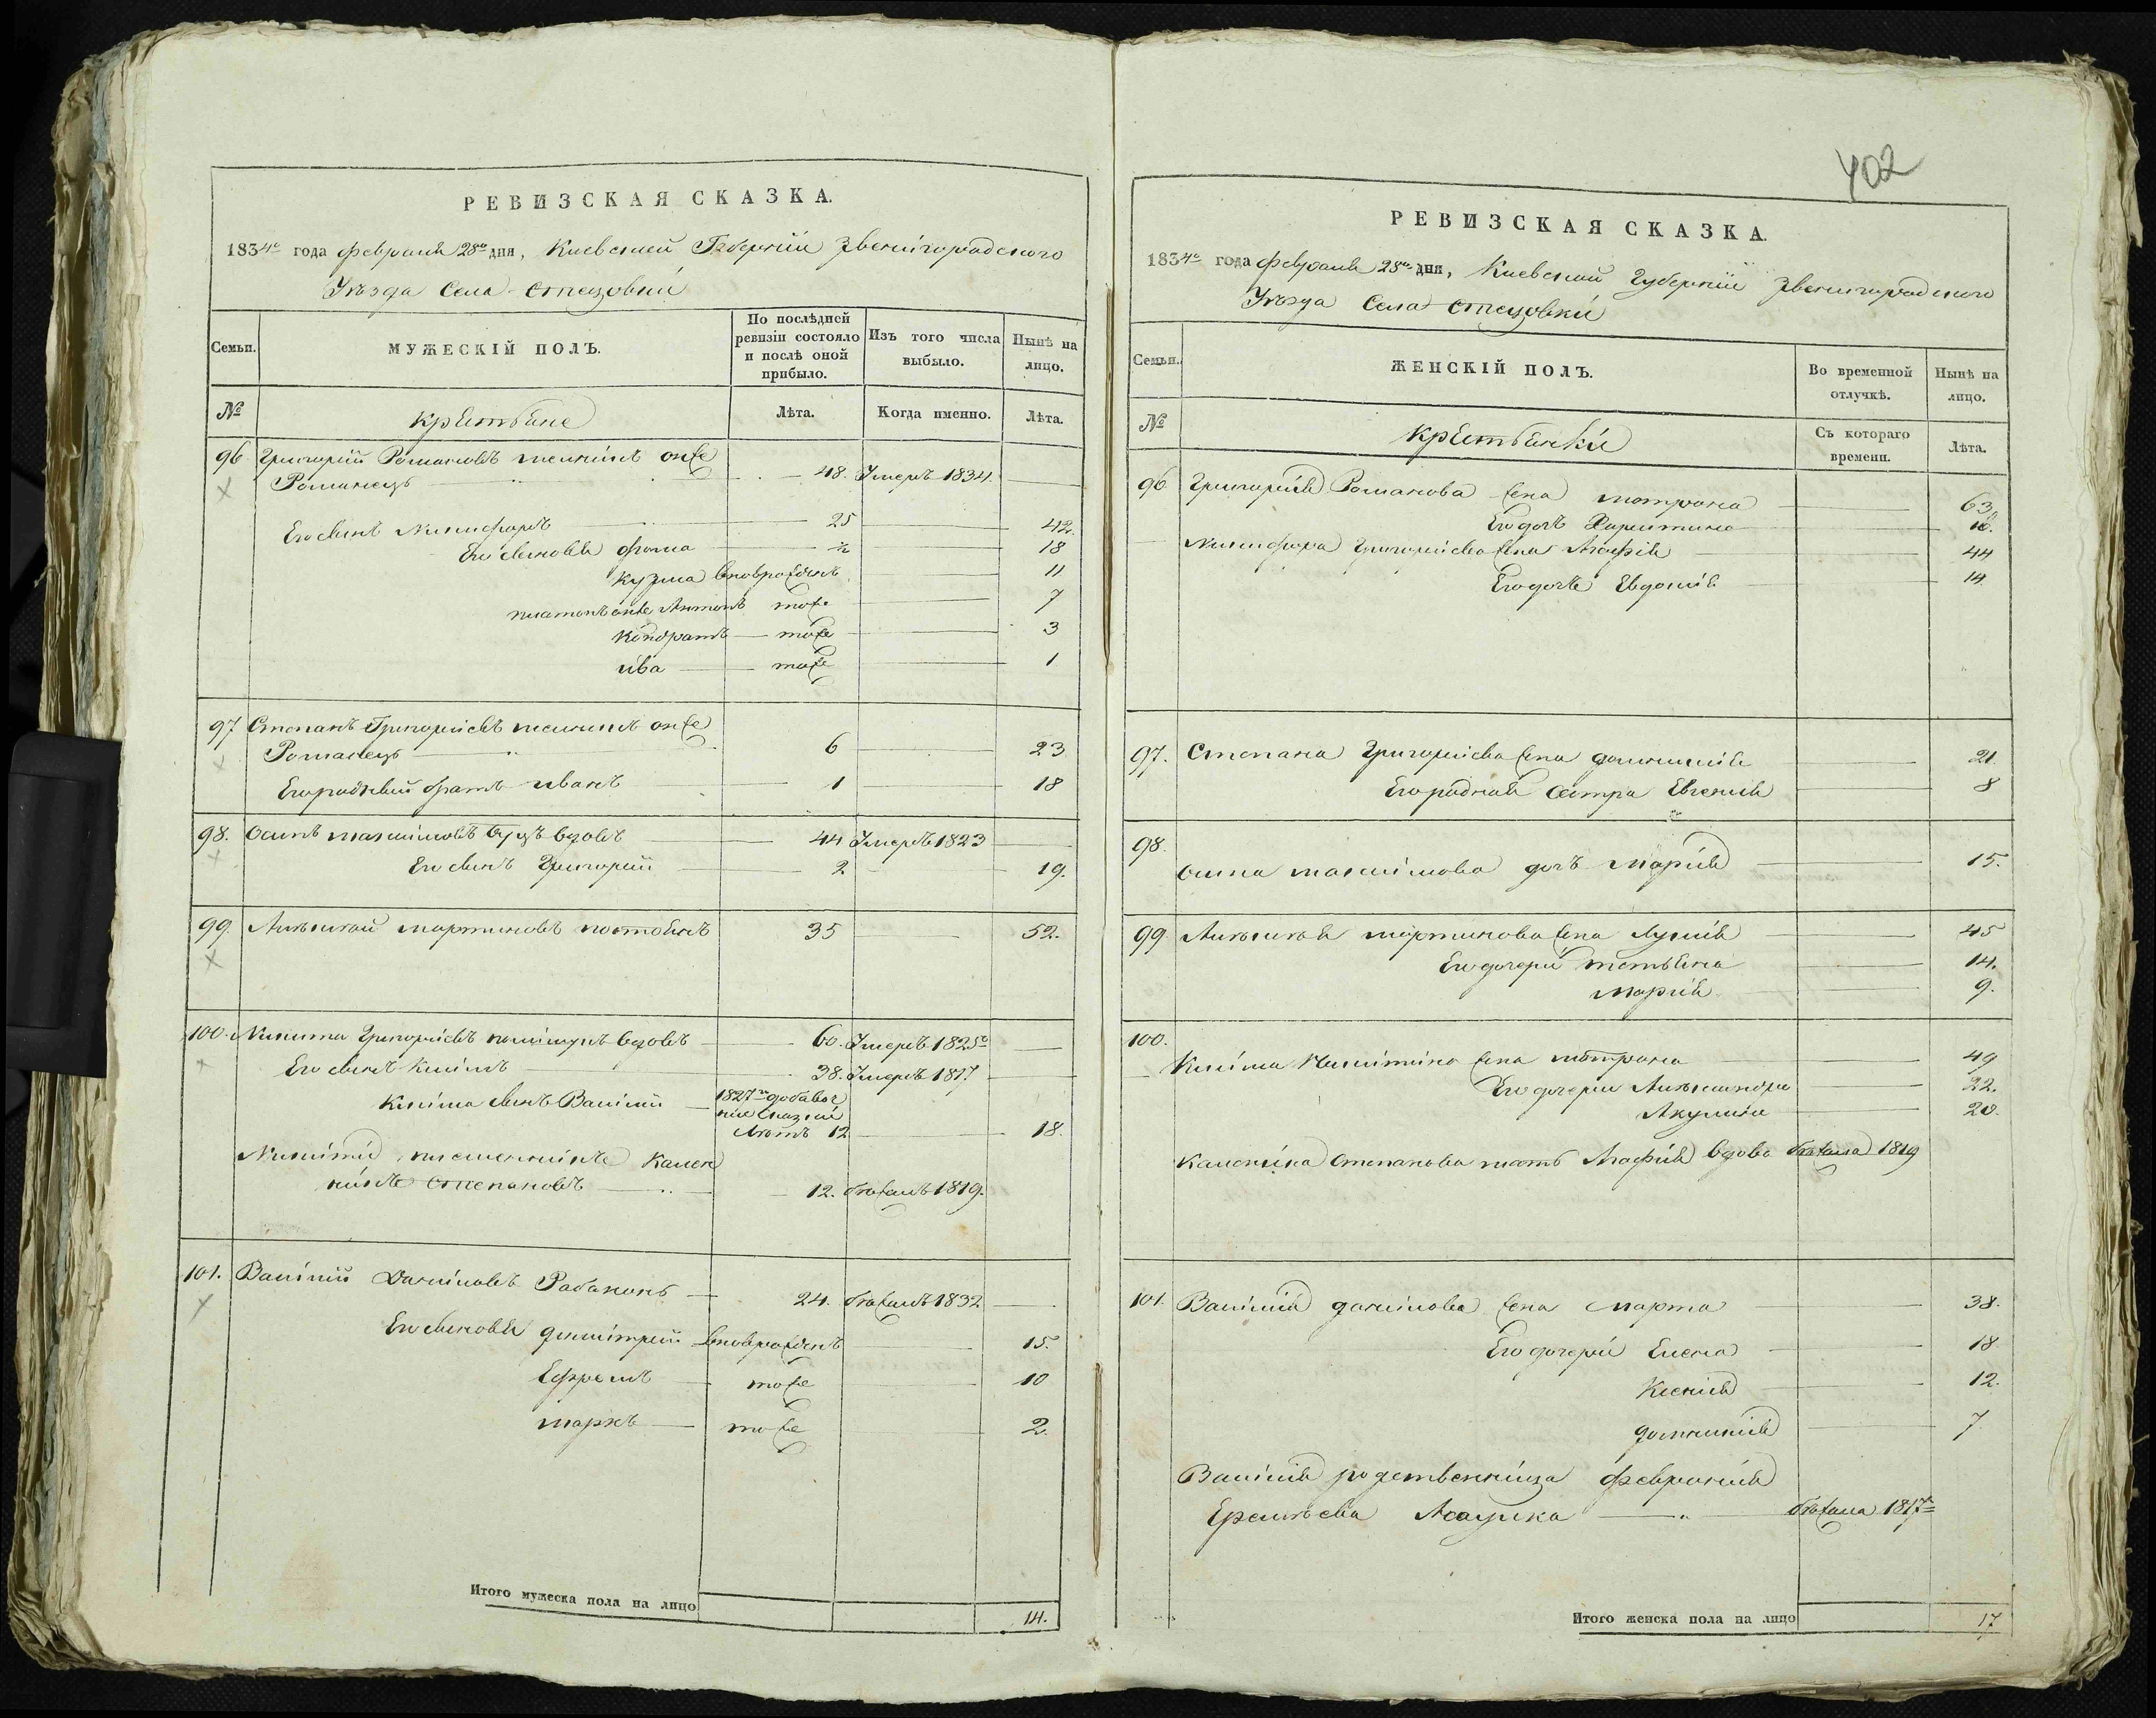 РЕВИЗСКАЯ СКАЗКА.
1834го года февраля 28го дня, Киевской Губернїи Звенигородского
Уѣзда Села Стецовки
Семьи.
МУЖЕСКІЙ ПОЛЪ.
По послѣдней ревизіи состояло и послѣ оной прибыло.
Изъ того числа выбыло.
Нынѣ на лицо.
№
крестьяне
Лѣта.
Когда именно.
Лѣта.
96 Григорїй Романовъ онже
Романецъ 48. Умеръ 1834.
Его сынъ Никифоръ 25 42.
Его сыновья фома ½ 18
Кузма вноврожденъ 11
онже Антонъ тоже 7
Кондратъ тоже 3
їва тоже 1
97 Степанъ Григорїевъ онже
Романецъ 6 23
Его родный братъ иванъ 1 18
98. Осипъ Максимовъ вдовъ 44 Умеръ 1823
Его сынъ Григорїй 2 19.
99. Алексѣй Мартиновъ 35 52.
100. Никита Григорїевъ вдовъ 60. Умеръ 1825го
Его сынъ Климъ 38. Умеръ 1817
Клима сынъ Василїй 1827го
Лѣтъ 12 18.
Никиты племенникъ Кален
никъ Степановъ 12. бѣжалъ 1819.
101. Василїй Даниловъ 24. бѣжалъ 1832
Его сыновья димитрїй вноврожденъ 15.
Ефремъ тоже 10
марко тоже 2.
Итого мужеска пола на лицо 14.
402
РЕВИЗСКАЯ СКАЗКА.
1834го года февраля 28го дня, Киевской Губернїи Звенигородского
Уѣзда Села Стецовки
Семьи.
ЖЕНСКІЙ ПОЛЪ.
Во временной отлучкѣ.
Нынѣ на лицо.
№
крестьянки
Съ котораго времени.
Лѣта.
96 Григорїя Романова жена мотрона 63.
Его дочъ Харитина
Никифора Григорїева жена Агафїя 44
Его дочъ Евдокїя 14
97. Степана Григорїева жена домникїя 21
Его родная сестра Евгенїя 8
98.
осипа максимова дочъ Марїя 15.
99. Алексѣя мартинова жена Лукїя 45
Его дочери татьяна 14.
марїя 9.
100.
Клима Никитина жена мотрона 49
Его дочери Александра 22.
Акулина 20.
Каленика Степанова мать Агафїя вдова бѣжала 1819
101. Василїя данилова жена марта 38.
Его дочери Елена 18
Ксенїя 12.
домникїя 7.
Василїя родственница февронїя
Еремѣева бѣжала 1817го
Итого женска пола на лицо 17